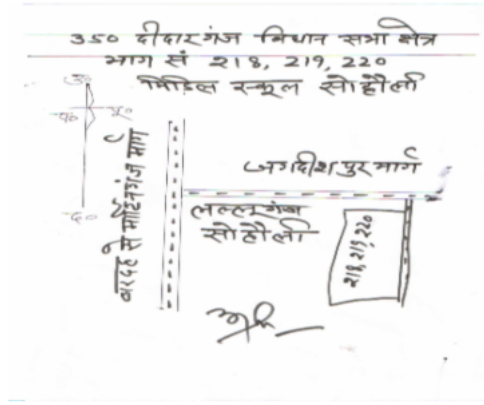 350 दीदारगंज विधान सभा क्षेत्र
भाग सं 218, 219, 220
मिडिल स्कूल सोहौली
उ०
प० पू०
द०
बरदह से मार्टिनगंज मार्ग
जगदीशपुर मार्ग
लल्लूगंज
सोहौली
218, 219, 220